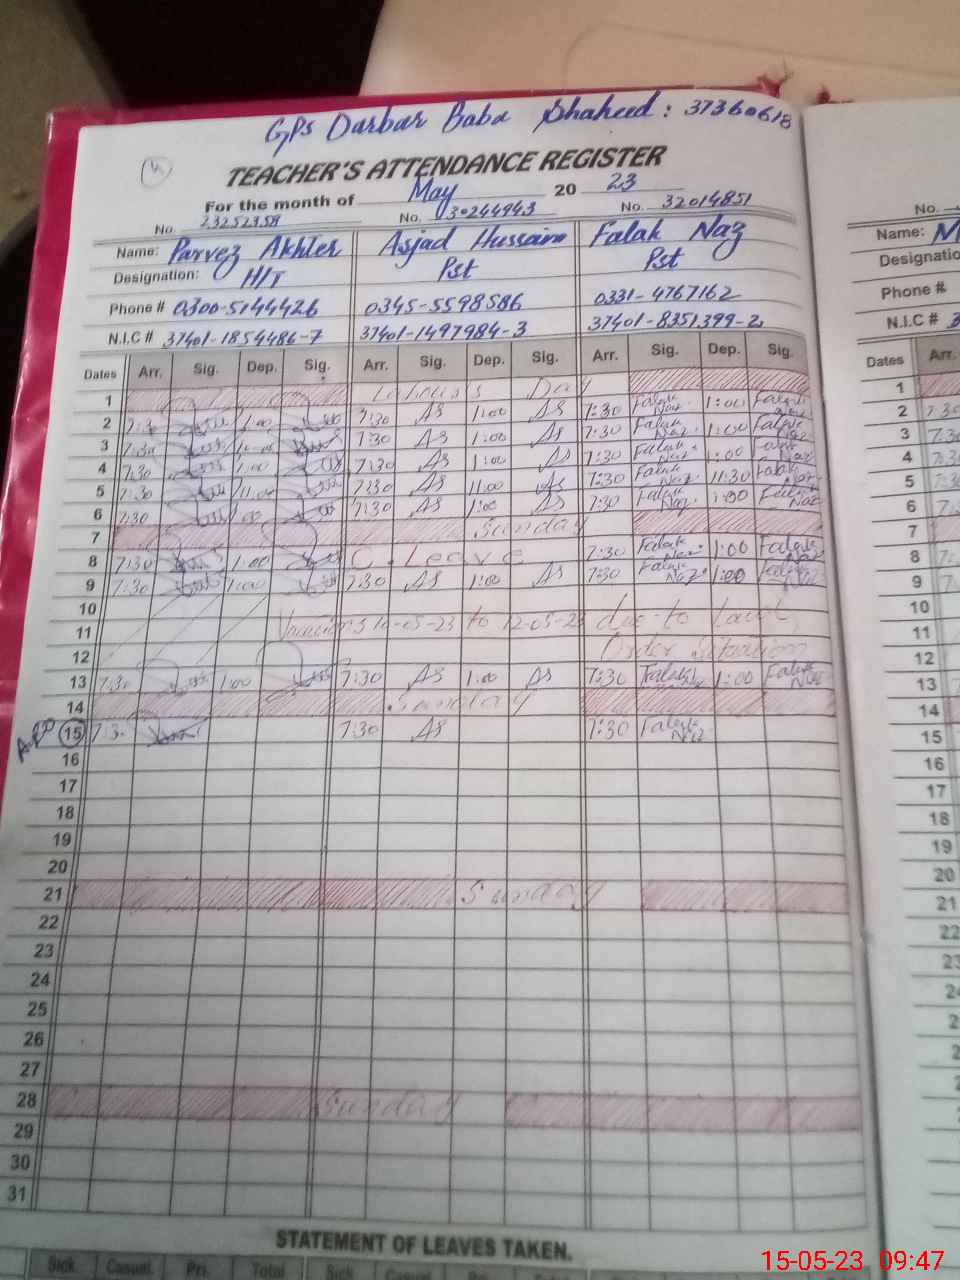 GPS Darbar Baba Shaheed : 37360618
TEACHER'S ATTENDANCE REGISTER
For the month of May 20 23
No. 23252358 No. 30244943 No. 32014851 No.
Name: Parvez Akhter Asjad Hussain Falak Naz Name: M
Designation: H/T Pst Pst Designatio
Phone # 0300-5144426 0345-5598586 0331-4767162 Phone #
N.I.C # 37401-1854486-7 37401-1497984-3 37401-8351399-2 N.I.C # 3
Dates Arr. Sig. Dep. Sig. Arr. Sig. Dep. Sig. Arr. Sig. Dep. Sig. Dates Arr.
1 Labour's Day 1
2 7:30 1:00 7:30 AS 1:00 AS 7:30 Falak Naz 1:00 Falak Naz 2 7:30
3 7:30 7:30 AS 1:00 AS 7:30 Falak Naz 1:00 Falak Naz 3 7:3
4 7:30 1:00 7:30 AS 1:00 AS 7:30 Falak Naz 1:00 Falak Naz 4
5 7:30 11:00 7:30 AS 11:00 AS 7:30 Falak Naz 11:30 Falak Naz 5
6 7:30 7:30 AS 1:00 AS 7:30 Falak Naz 1:00 Falak Naz 6
7 Sunday 7
8 7:30 1:00 C. Leave 7:30 Falak Naz 1:00 Falak Naz 8
9 7:30 1:00 7:30 AS 1:00 AS 7:30 Falak Naz 1:00 Falak Naz 9
10 10
11 Vacations 10-05-23 to 12-05-23 due to Law & 11
12 Order Situation 12
13 7:30 1:00 7:30 AS 1:00 AS 7:30 Falak Naz 1:00 Falak Naz 13
14 Sunday 14
15 7:30 7:30 AS 7:30 Falak Naz 15
16 16
17 17
18 18
19 19
20 20
21 Sunday 21
22 22
23 23
24
25
26
27
28 Sunday
29
30
31
STATEMENT OF LEAVES TAKEN.
Sick Casual Pri. Total Sick Casual
15-05-23 09:47